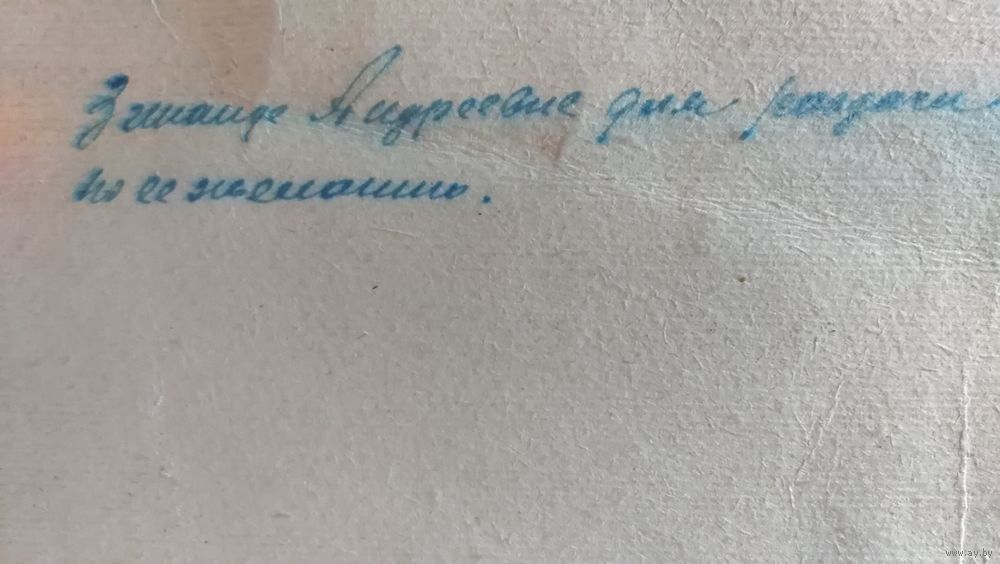 Зинаиде Андреевне для раздачи
по ее желанию.
www.ay.by